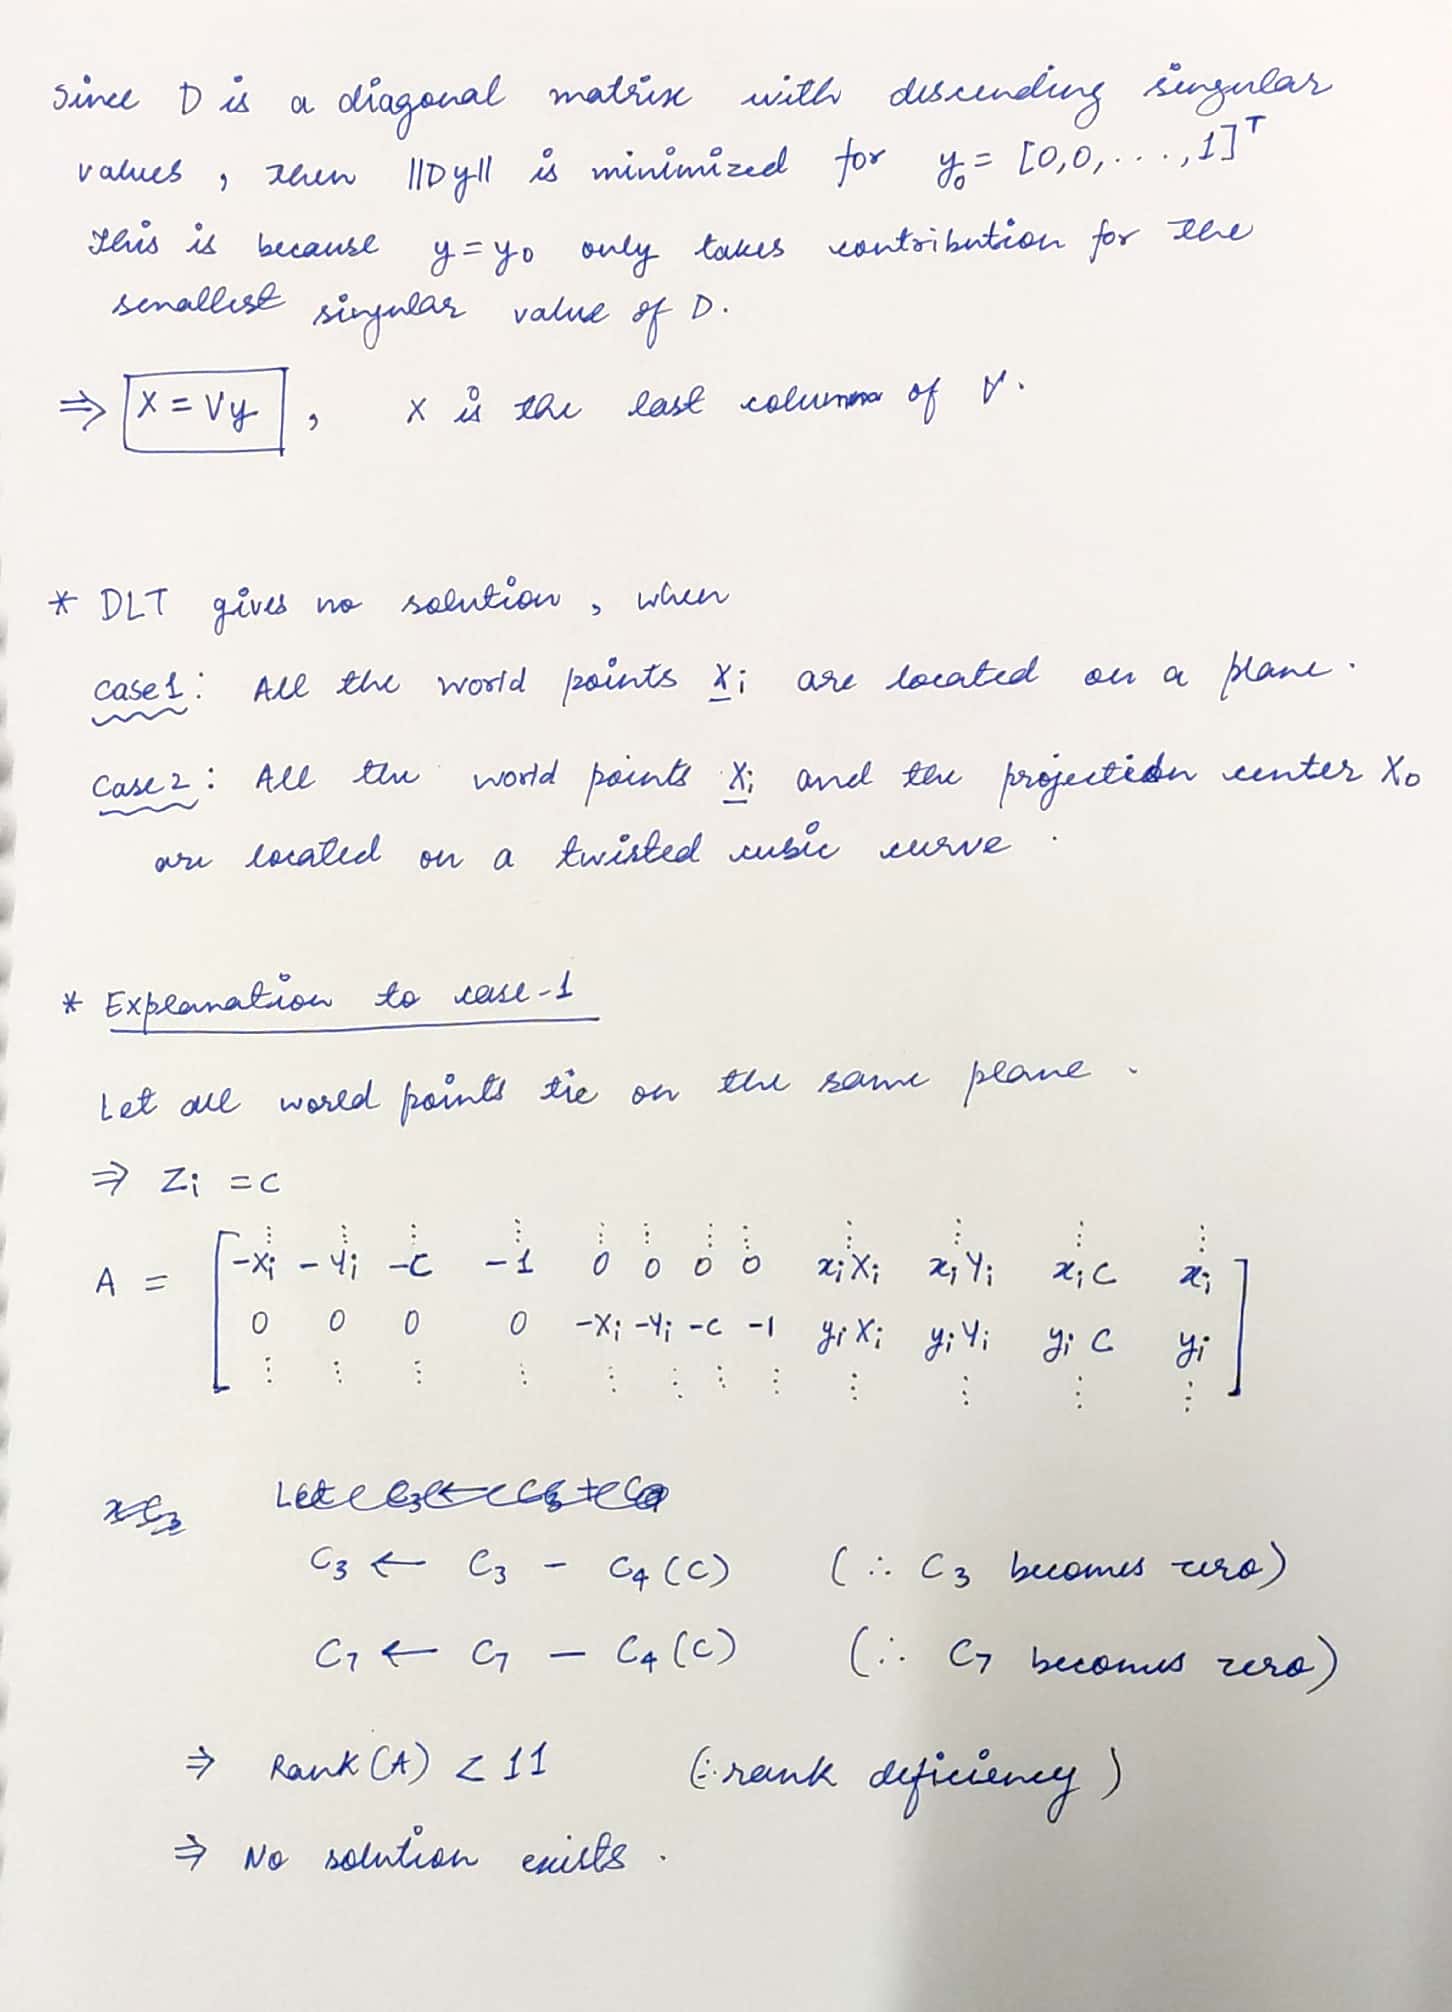 Since D is a diagonal matrix with descending singular
values, then ||Dy|| is minimized for y₀ = [0,0,...,1]ᵀ
This is because y=y₀ only takes contribution for the
smallest singular value of D.
⇒ X = Vy , X is the last column of V.
* DLT gives no solution, when
case 1: All the world points Xᵢ are located on a plane.
case 2: All the world points Xᵢ and the projection center X₀
are located on a twisted cubic curve.
* Explanation to case-1
Let all world points lie on the same plane.
⇒ Zᵢ = C
⋮ ⋮ ⋮ ⋮ ⋮ ⋮ ⋮ ⋮ ⋮ ⋮ ⋮ ⋮
A = [ -Xᵢ -Yᵢ -C -1 0 0 0 0 xᵢXᵢ xᵢYᵢ xᵢC xᵢ ]
0 0 0 0 -Xᵢ -Yᵢ -C -1 yᵢXᵢ yᵢYᵢ yᵢC yᵢ
⋮ ⋮ ⋮ ⋮ ⋮ ⋮ ⋮ ⋮ ⋮ ⋮ ⋮ ⋮
Let
C₃ ← C₃ - C₄(C) (∴ C₃ becomes zero)
C₇ ← C₇ - C₄(C) (∴ C₇ becomes zero)
⇒ Rank(A) < 11 (∴ rank deficiency)
⇒ No solution exists.